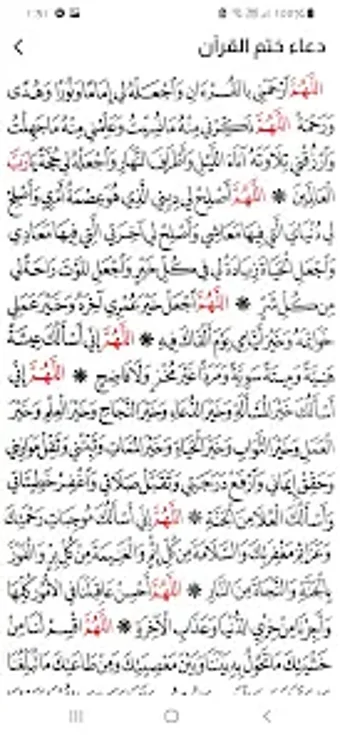 دعاء ختم القرآن
اللَّهُمَّ ارْحَمْنِي بِالقُرْءَانِ وَاجْعَلْهُ لِي إِمَامًا وَنُورًا وَهُدًى
وَرَحْمَةً اللَّهُمَّ ذَكِّرْنِي مِنْهُ مَانُسِّيتُ وَعَلِّمْنِي مِنْهُ مَاجَهِلْتُ
وَارْزُقْنِي تِلَاوَتَهُ آنَاءَ اللَّيْلِ وَأَطْرَافَ النَّهَارِ وَاجْعَلْهُ لِي حُجَّةً يَارَبَّ
العَالَمِينَ * اللَّهُمَّ أَصْلِحْ لِي دِينِي الَّذِي هُوَ عِصْمَةُ أَمْرِي وَأَصْلِحْ
لِي دُنْيَايَ الَّتِي فِيهَا مَعَاشِي وَأَصْلِحْ لِي آخِرَتِي الَّتِي فِيهَا مَعَادِي
وَاجْعَلِ الحَيَاةَ زِيَادَةً لِي فِي كُلِّ خَيْرٍ وَاجْعَلِ المَوْتَ رَاحَةً لِي
مِنْ كُلِّ شَرٍّ * اللَّهُمَّ اجْعَلْ خَيْرَ عُمْرِي آخِرَهُ وَخَيْرَ عَمَلِي
خَوَاتِمَهُ وَخَيْرَ أَيَّامِي يَوْمَ أَلْقَاكَ فِيهِ * اللَّهُمَّ إِنِّي أَسْأَلُكَ عِيشَةً
هَنِيَّةً وَمِيتَةً سَوِيَّةً وَمَرَدًّا غَيْرَ مُخْزٍ وَلَا فَاضِحٍ * اللَّهُمَّ إِنِّي
أَسْأَلُكَ خَيْرَ المَسْأَلَةِ وَخَيْرَ الدُّعَاءِ وَخَيْرَ النَّجَاحِ وَخَيْرَ العِلْمِ وَخَيْرَ
العَمَلِ وَخَيْرَ الثَّوَابِ وَخَيْرَ الحَيَاةِ وَخَيْرَ المَمَاتِ وَثَبِّتْنِي وَثَقِّلْ مَوَازِينِي
وَحَقِّقْ إِيمَانِي وَارْفَعْ دَرَجَتِي وَتَقَبَّلْ صَلَاتِي وَاغْفِرْ خَطِيئَاتِي
وَأَسْأَلُكَ العُلَا مِنَ الجَنَّةِ * اللَّهُمَّ إِنِّي أَسْأَلُكَ مُوجِبَاتِ رَحْمَتِكَ
وَعَزَائِمَ مَغْفِرَتِكَ وَالسَّلَامَةَ مِنْ كُلِّ إِثْمٍ وَالغَنِيمَةَ مِنْ كُلِّ بِرٍّ وَالفَوْزَ
بِالجَنَّةِ وَالنَّجَاةَ مِنَ النَّارِ * اللَّهُمَّ أَحْسِنْ عَاقِبَتَنَا فِي الأُمُورِ كُلِّهَا
وَأَجِرْنَا مِنْ خِزْيِ الدُّنْيَا وَعَذَابِ الآخِرَةِ * اللَّهُمَّ اقْسِمْ لَنَا مِنْ
خَشْيَتِكَ مَاتَحُولُ بِهِ بَيْنَنَا وَبَيْنَ مَعْصِيَتِكَ وَمِنْ طَاعَتِكَ مَاتُبَلِّغُنَا